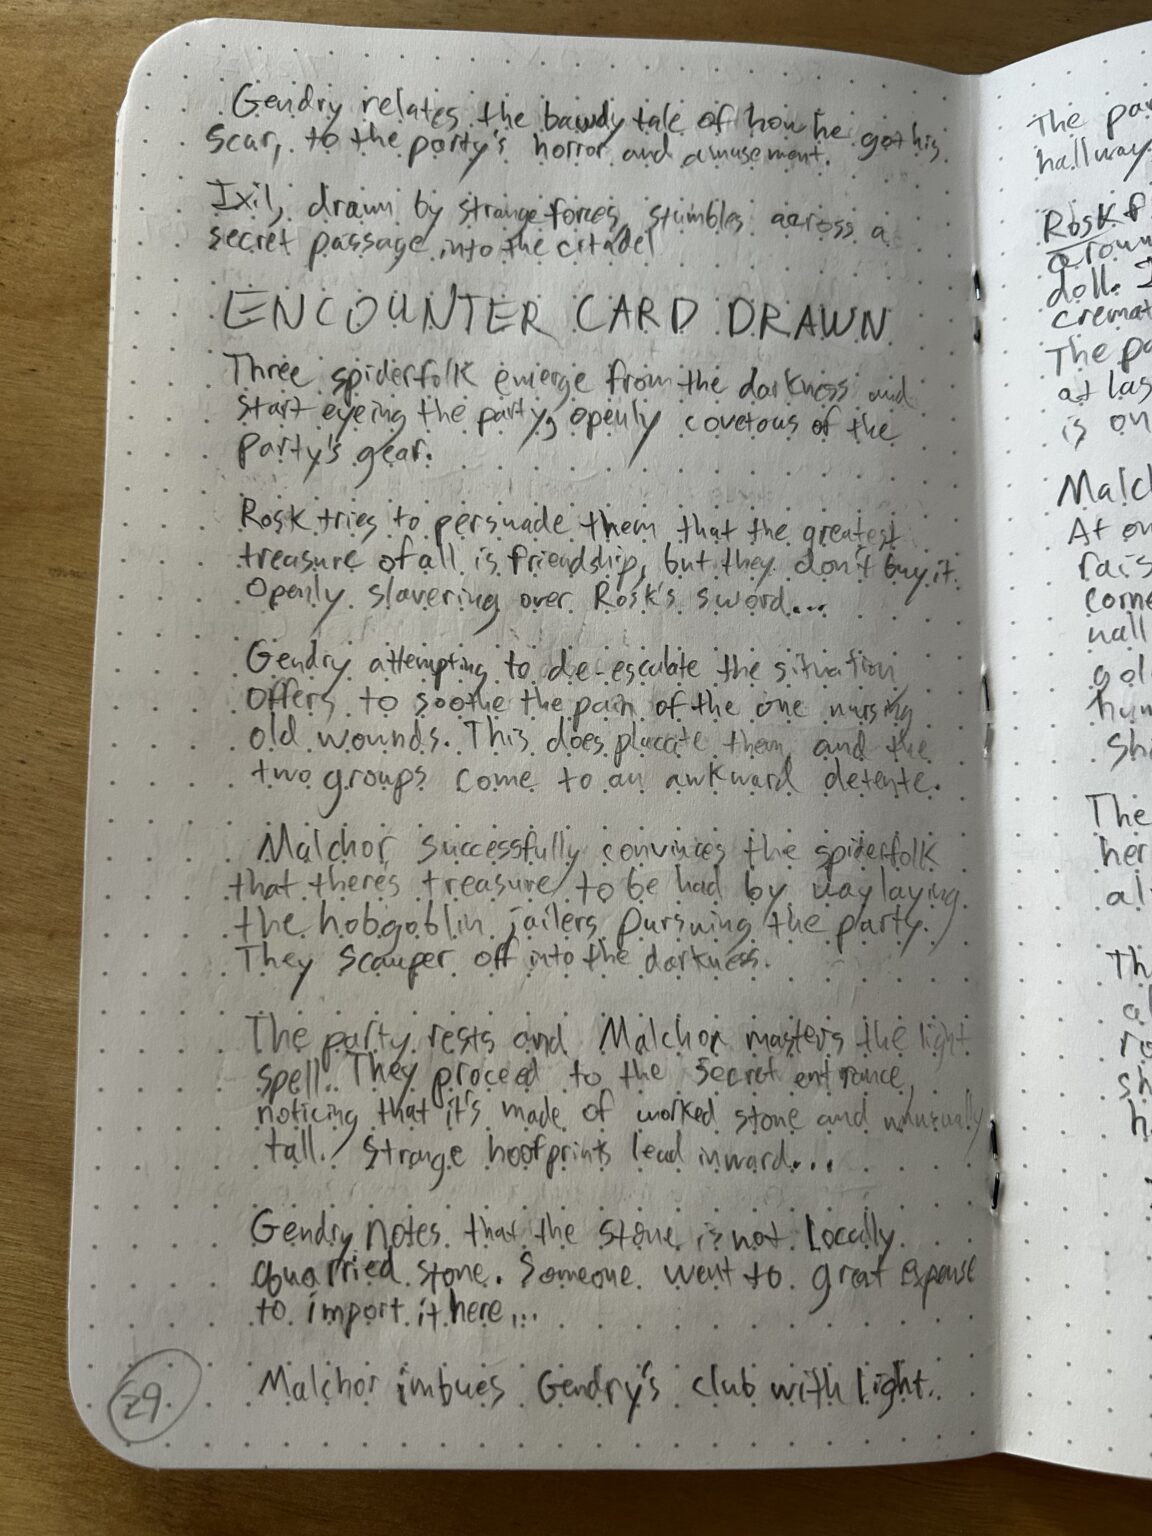 Gendry relates the bawdy tale of how he got his
scar, to the party's horror and amusement.
Ixil, drawn by strange forces, stumbles across a
secret passage into the citadel
ENCOUNTER CARD DRAWN
Three spiderfolk emerge from the darkness and
start eyeing the party, openly covetous of the
party's gear.
Rosk tries to persuade them that the greatest
treasure of all is friendship, but they don't buy it.
Openly slavering over Rosk's sword...
Gendry attempting to de-escalate the situation
offers to soothe the pain of the one nursing
old wounds. This does placate them and the
two groups come to an awkward detente.
Malchor successfully convinces the spiderfolk
that there's treasure to be had by waylaying
the hobgoblin jailers pursuing the party.
They scamper off into the darkness.
The party rests and Malchor masters the light
spell. They proceed to the secret entrance,
noticing that it's made of worked stone and unusually
tall. Strange hoofprints lead inward...
Gendry notes that the stone is not locally
quarried stone. Someone went to great expense
to import it here...
Malchor imbues Gendry's club with light.
29
The
hallway
Rosk
doll.
The
at
is on
Malch
At
The
her